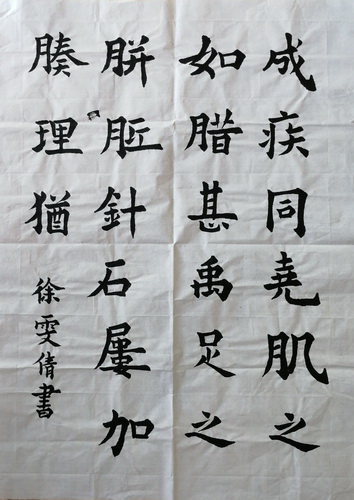 成疾同堯肌之
如腊甚禹足之
胼胝針石屢加
腠理猶
徐雯倩書